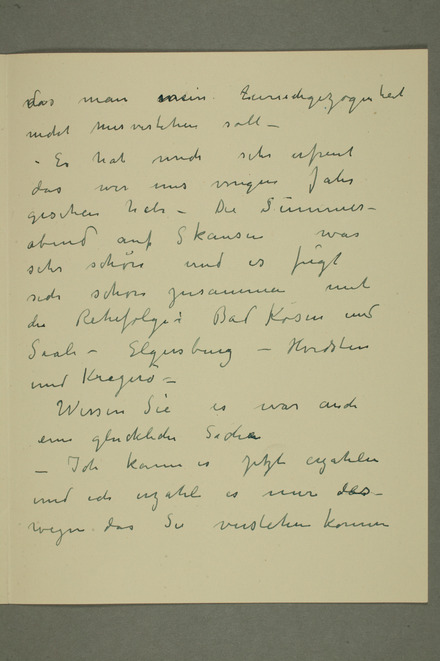 das man mein Zurückgezogenheit
nicht misverstehen soll –
– Es hat mich sehr erfreut
das wir uns voriges Jahr
gesehen hab – Die Sommer–
abend auf Skansen was
sehr schön und es fügt
sich schon zusammen mit
die Reihefolge: Bad Kösen und
Saale – Elgersburg – Hvidsten
und Kragerö –
Wissen Sie es war auch
eine glückliche Sache
– Ich kann es jetzt erzählen
und ich erzähle es nur des–
wegen das Sie verstehen können